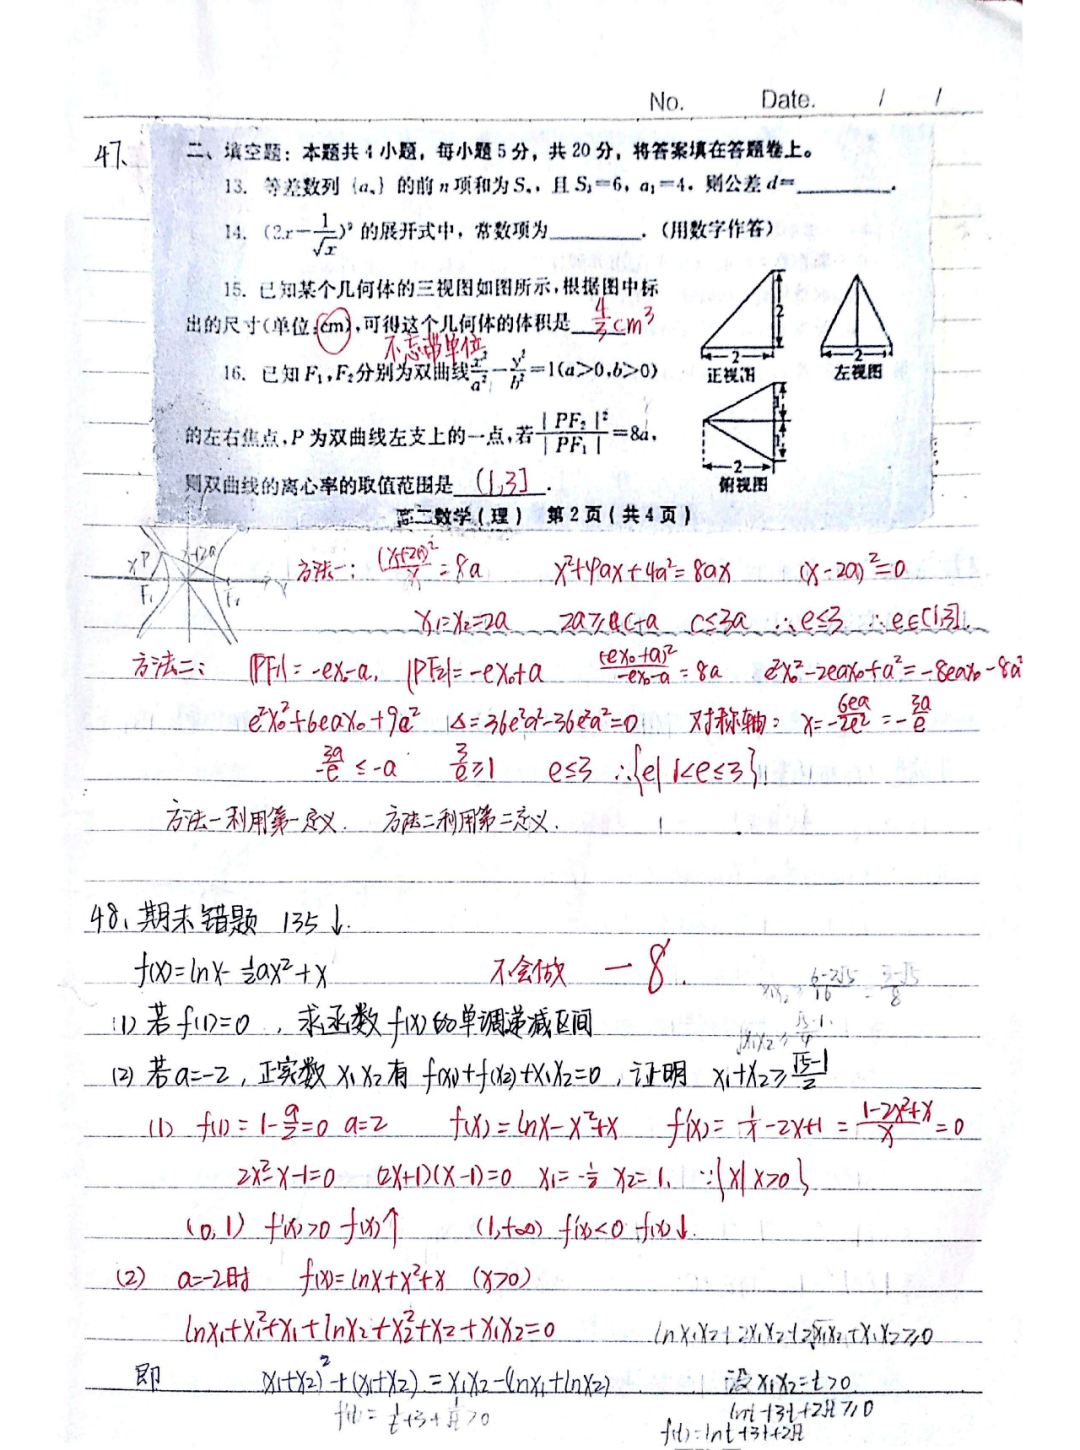 No. Date. / /
47、
二、填空题：本题共4小题，每小题5分，共20分，将答案填在答题卷上。
13. 等差数列{aₙ}的前n项和为Sₙ，且S₃=6，a₁=4。则公差d=________.
14. (2x-1/√x)⁹的展开式中，常数项为________.（用数字作答）
15. 已知某个几何体的三视图如图所示，根据图中标
出的尺寸(单位:cm)，可得这个几何体的体积是 4/3 cm³
不忘带单位
16. 已知F₁，F₂分别为双曲线x²/a²-y²/b²=1(a>0,b>0)
的左右焦点，P为双曲线左支上的一点，若|PF₂|²/|PF₁|=8a，
则双曲线的离心率的取值范围是 (1,3].
2 2 2
正视图 左视图
1 1 2
俯视图
高二数学(理) 第2页(共4页)
x P x+2a
F₁ F₂
方法一: (x+2a)²/x=8a x²+4ax+4a²=8ax (x-2a)²=0
x₁=x₂=2a 2a≥c-a c≤3a ∴e≤3 ∴e∈(1,3].
方法二: |PF₁|=-ex₀-a, |PF₂|=-ex₀+a (-ex₀+a)²/-ex₀-a=8a e²x₀²-2eax₀+a²=-8eax₀-8a²
e²x₀²+6eax₀+9a² Δ=36e²a²-36e²a²=0 对称轴: x=-6ea/2e²=-3a/e
-3a/e≤-a 3/e≥1 e≤3 ∴{e|1<e≤3}
方法一利用第一定义. 方法二利用第二定义.
48、期末错题 135↓.
f(x)=lnx-½ax²+x 不会做 -8.
x₁x₂≥(6-2√5)/16=(3-√5)/8
(1) 若f(1)=0, 求函数f(x)的单调递减区间
√x₁x₂≥(√5-1)/4
(2) 若a=-2, 正实数x₁x₂有f(x₁)+f(x₂)+x₁x₂=0, 证明x₁+x₂≥(√5-1)/2
(1) f(1)=1-a/2=0 a=2 f(x)=lnx-x²+x f'(x)=1/x-2x+1=(1-2x²+x)/x=0
2x²-x-1=0 (2x+1)(x-1)=0 x₁=-½ x₂=1. ∵{x|x>0}
(0,1) f'(x)>0 f(x)↑ (1,+∞) f'(x)<0 f(x)↓.
(2) a=-2时 f(x)=lnx+x²+x (x>0)
lnx₁+x₁²+x₁+lnx₂+x₂²+x₂+x₁x₂=0
lnx₁x₂+2x₁x₂+2√x₁x₂+x₁x₂≥0
即 (x₁+x₂)²+(x₁+x₂)=x₁x₂-(lnx₁+lnx₂)
设x₁x₂=t>0
f'(t)=1/t+3+1/√t>0
lnt+3t+2√t≥0
f(t)=lnt+3t+2√t